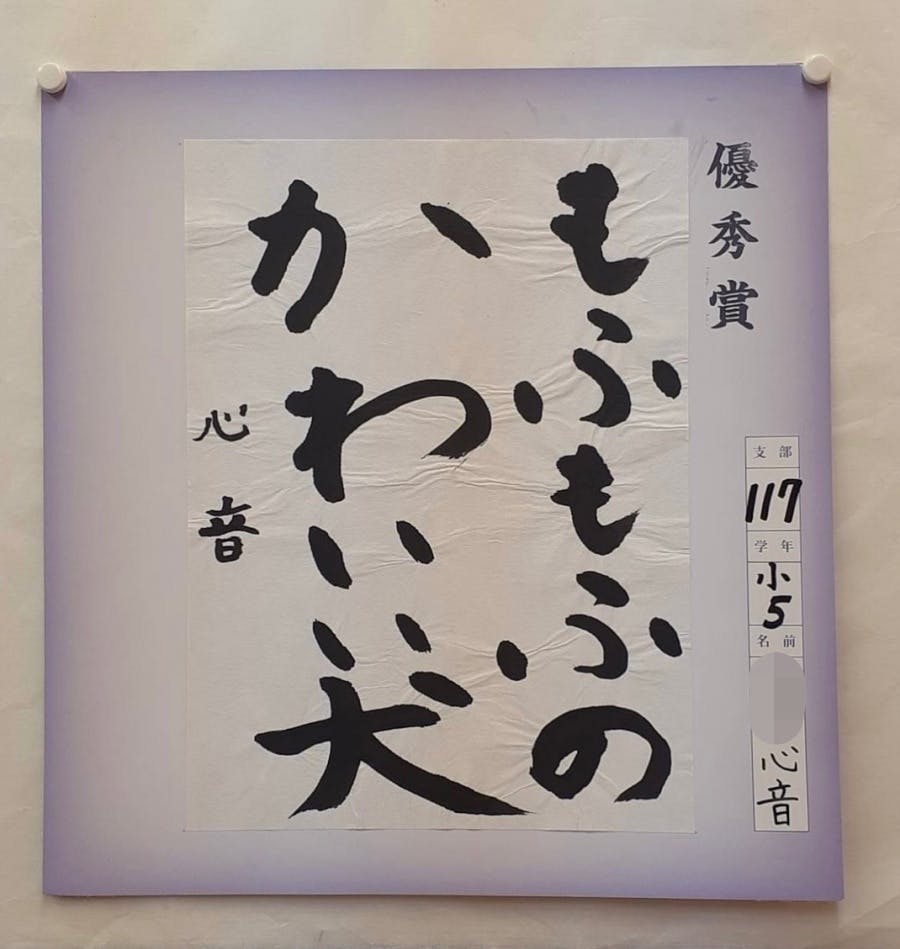 優秀賞
支部
117
学年
小5
名前
心音
もふもふの
かわいい犬
心音